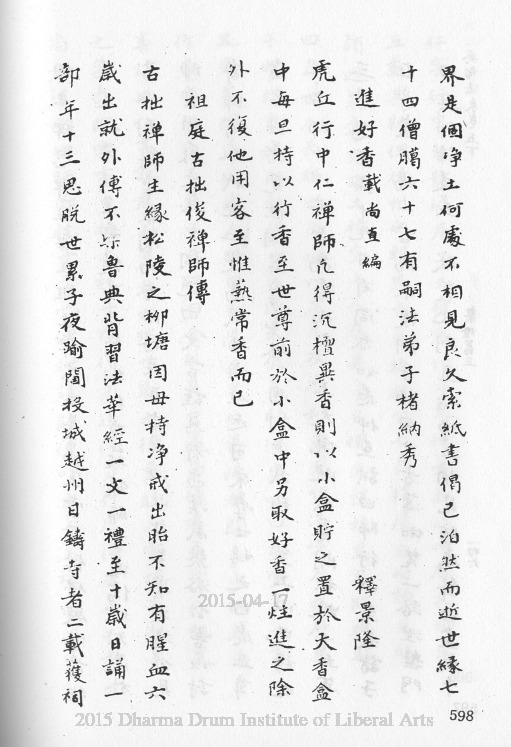 界是個淨土何處不相見良久索紙書偈已泊然而逝世緣七
十四僧臈六十七有嗣法弟子楮衲秀
進好香載尚直編　釋景隆
虎丘行中仁禪師凡得沉檀異香則以小盒貯之置於大香盒
中每旦持以行香至世尊前於小盒中另取好香一炷進之除
外不復他用客至惟爇常香而已
祖庭古拙俊禪師傳
古拙禪師生緣松陵之柳塘因母持淨戒出胎不知有腥血六
歲出就外傅不樂魯典背習法華經一文一禮至十歲日誦一
部年十三思脫世累子夜踰閫投城越州日鑄寺者二載獲祠
2015-04-17
2015 Dharma Drum Institute of Liberal Arts
598